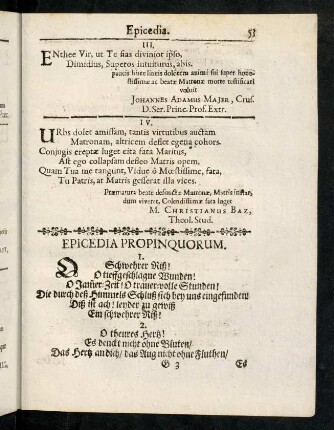 Epicedia. 53
III.
ENthee Vir, ut Te sias divinior ipso,
Dimidius, Superos intuiturus, abis.
paucis hisce lineis dolorem animi sui super hono-
stissimæ ac beatæ Matronæ morte testificari
voluit
JOHANNES ADAMUS MAJER, Cruf.
D. Ser. Princ. Prof. Extr.
IV.
URbs dolet amissam, tantis virtutibus auctam
Matronam, altricem deflet egena cohors.
Conjugis ereptæ luget cita fata Maritus,
Ast ego collapsam defleo Matris opem,
Quam Tua me tangunt, Viduе ô Mœstissime, fata,
Tu Patris, at Matris gesserat illa vices.
Præmatura beatè defunctæ Matronæ, Matris instar,
dum viveret, Colendissimæ fata luget
M. CHRISTIANUS BAZ,
Theol. Stud.
EPICEDIA PROPINQUORUM.
1.
O Schwehrer Riß!
O tieffgeschlagne Wunden!
O Jam̃er-Zeit! O trauer-volle Stunden!
Die durch deß Himmels Schluß sich bey uns eingefunden/
Diß ist ach! leyder zu gewiß
Ein schwehrer Riß!
2.
O theures Hertz!
Es denckt nicht ohne Bluten/
Das Hertz an dich/ das Aug nicht ohne Fluthen/
G 3 Es